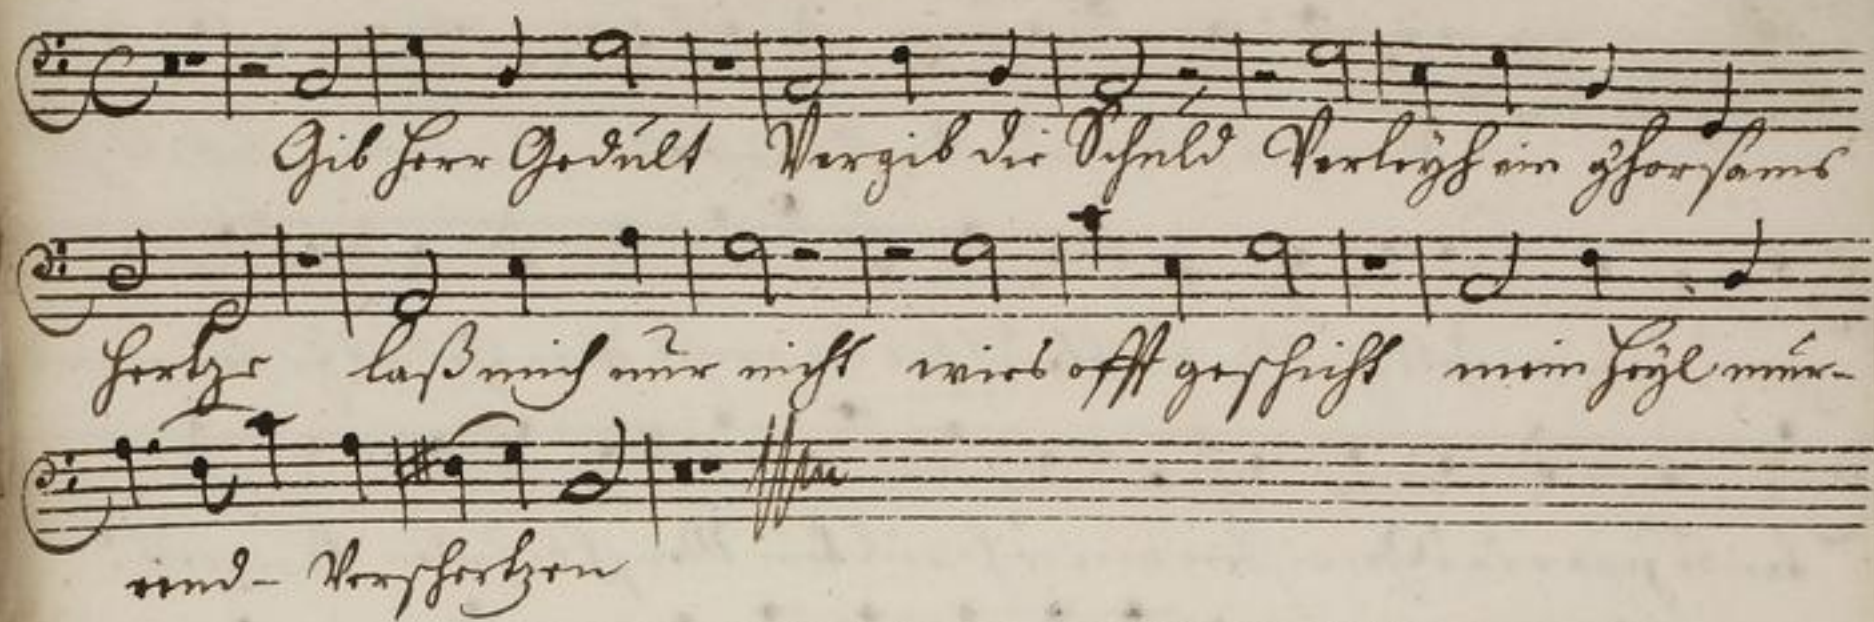 Gib Herr Gedult Vergib die Schuld Verleyh ein ghorsams
Hertze laß mich nur nicht wies offt geschicht mein Heyl mur-
rend- Verschertzen